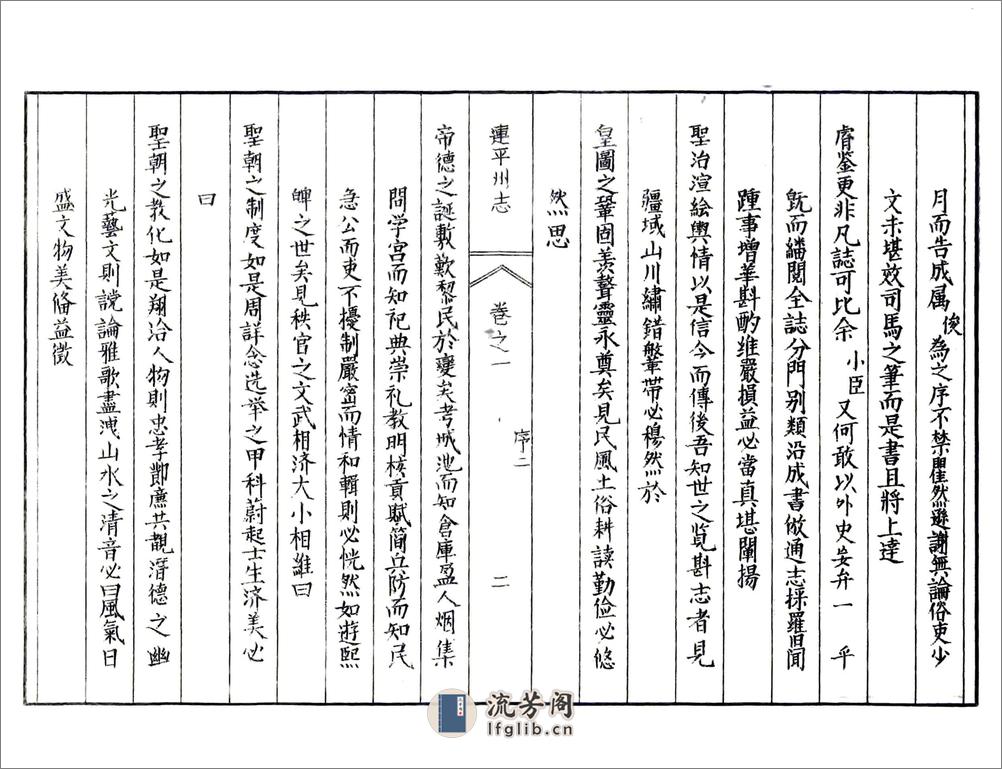 月而告成属俊為之序不禁瞿然遜謝無論俗吏少
文未堪效司馬之筆而是書且將上達
睿鉴更非凡誌可比余小臣又何敢以外史妄弁一乎
旣而繙閱全誌分門别類沿成書倣通志採羅旧聞
踵事增華斟酌维嚴損益必當真堪闡揚
聖治渲絵輿情以是信今而傳後吾知世之覧斯志者見
疆域山川繡錯鞶帶必穆然於
皇圖之鞏固羡聲靈永奠矣見民風土俗耕读勤儉必悠
然思
連平州志
卷之一
序二
二
帝德之誕敷歎黎民於變矣考城池而知倉庫盈人烟集
問学宮而知祀典崇礼教明核貢賦簡兵防而知民
急公而吏不擾制嚴密而情和輯則必恍然如遊熙
皞之世矣見秩官之文武相济大小相維曰
聖朝之制度如是周詳念选举之甲科蔚起士生济美必
曰
聖朝之教化如是翔洽人物則忠孝節廉共觀潛德之幽
光藝文則讜論雅歌盡洩山水之清音必曰風氣日
盛文物美俻益徵
流芳阁
lfglib.cn